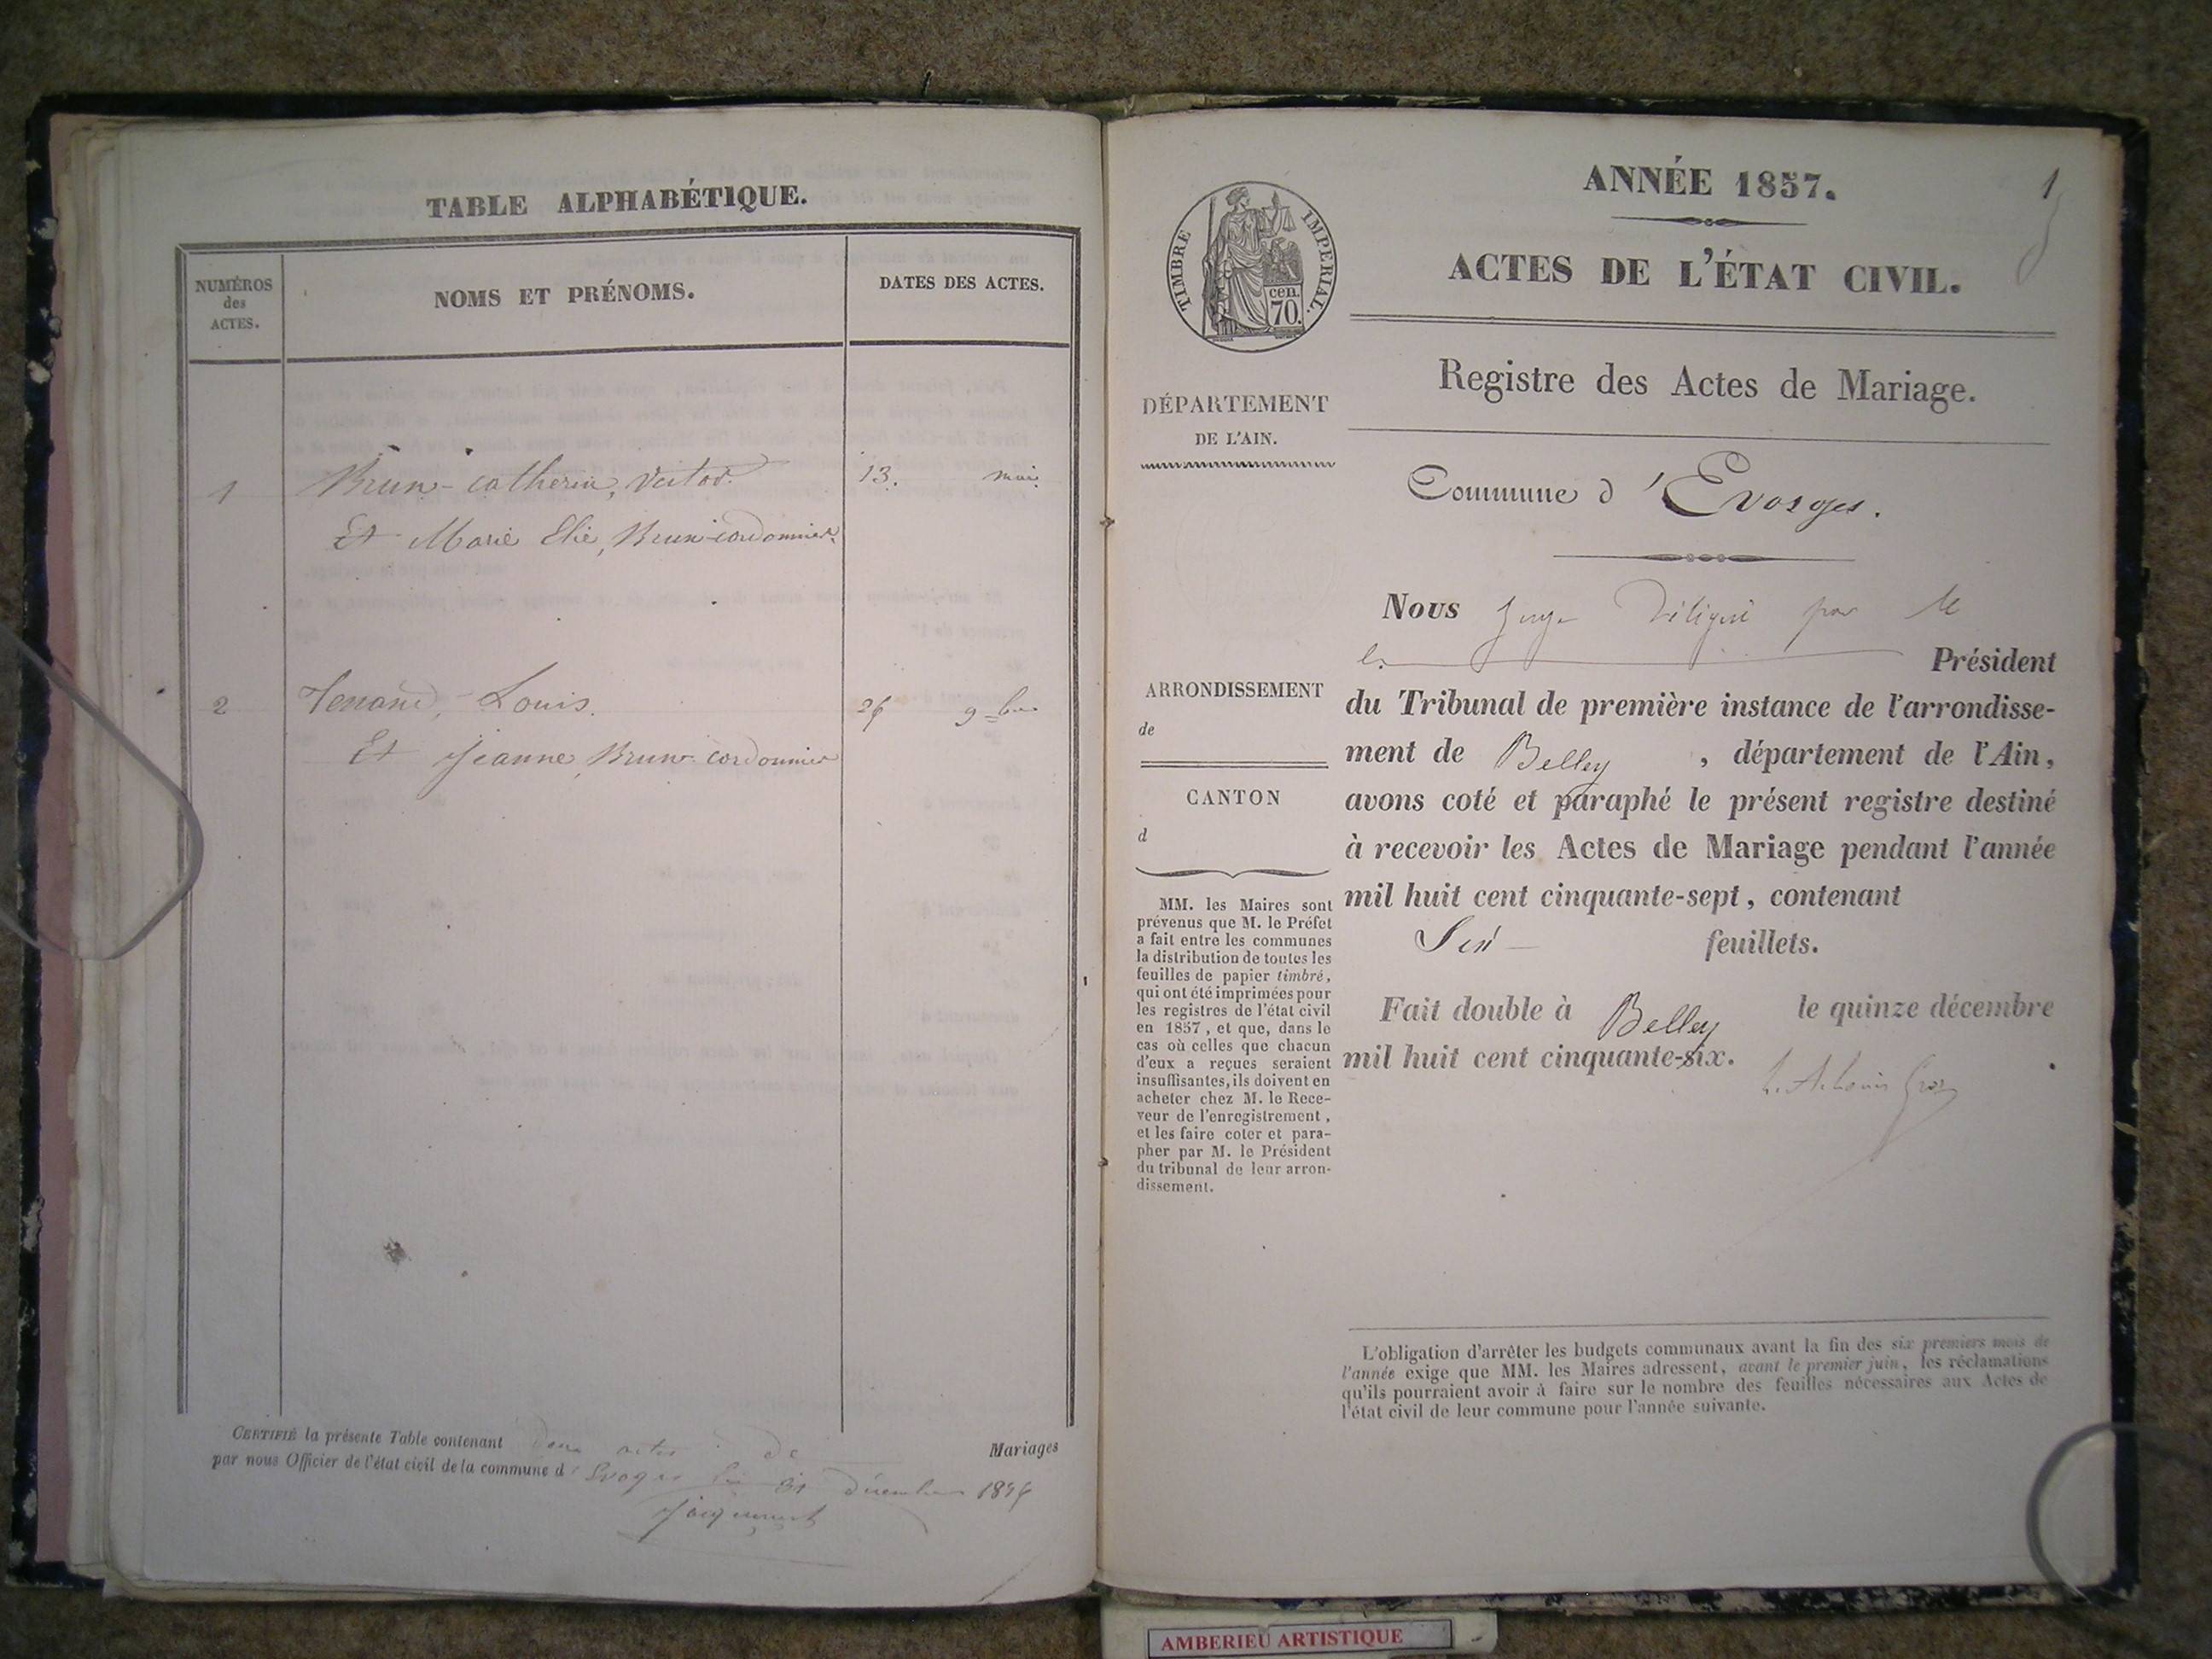 TABLE ALPHABÉTIQUE.
NUMÉROS
des
ACTES.
NOMS ET PRÉNOMS.
DATES DES ACTES.
1 Brun-catherin, 13. mai
Et Marie Elie, Brun-cordonnier
2 Tenand, Louis. 9bre
Et Jeanne, Brun-cordonnier
CERTIFIÉ la présente Table contenant deux actes de Mariages
par nous Officier de l'état civil de la commune d' Evoges le 31 décembre
Jacquemet
1
ANNÉE 1857.
ACTES DE L'ÉTAT CIVIL.
TIMBRE IMPERIAL.
cen.
70.
Registre des Actes de Mariage.
DÉPARTEMENT
DE L'AIN.
Commune d'Evosges.
Nous juge délégué par M
le Président
ARRONDISSEMENT
de
CANTON
d
du Tribunal de première instance de l'arrondisse-
ment de Belley , département de l'Ain,
avons coté et paraphé le présent registre destiné
à recevoir les Actes de Mariage pendant l'année
mil huit cent cinquante-sept, contenant
feuillets.
Fait double à Belley le quinze décembre
mil huit cent cinquante-six.
MM. les Maires sont
prévenus que M. le Préfet
a fait entre les communes
la distribution de toutes les
feuilles de papier timbré,
qui ont été imprimées pour
les registres de l'état civil
en 1857, et que, dans le
cas où celles que chacun
d'eux a reçues seraient
insuffisantes, ils doivent en
acheter chez M. le Rece-
veur de l'enregistrement,
et les faire coter et para-
pher par M. le Président
du tribunal de leur arron-
dissement.
L'obligation d'arrêter les budgets communaux avant la fin des six premiers mois de
l'année exige que MM. les Maires adressent, avant le premier juin, les réclamations
qu'ils pourraient avoir à faire sur le nombre des feuilles nécessaires aux Actes de
l'état civil de leur commune pour l'année suivante.
AMBERIEU ARTISTIQUE